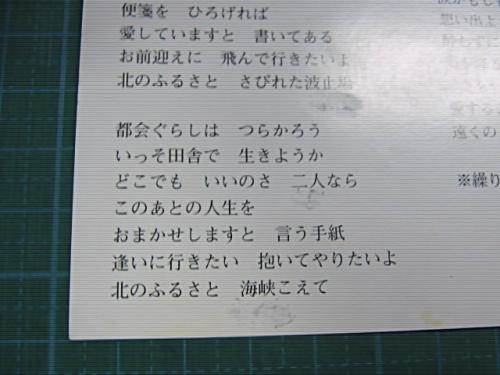 便箋を　ひろげれば
愛していますと　書いてある
お前迎えに　飛んで行きたいよ
北のふるさと　さびれた波止場
都会ぐらしは　つらかろう
いっそ田舎で　生きようか
どこでも　いいのさ　二人なら
このあとの人生を
おまかせしますと　言う手紙
逢いに行きたい　抱いてやりたいよ
北のふるさと　海峡こえて
想い出よ
遠くの
※繰り